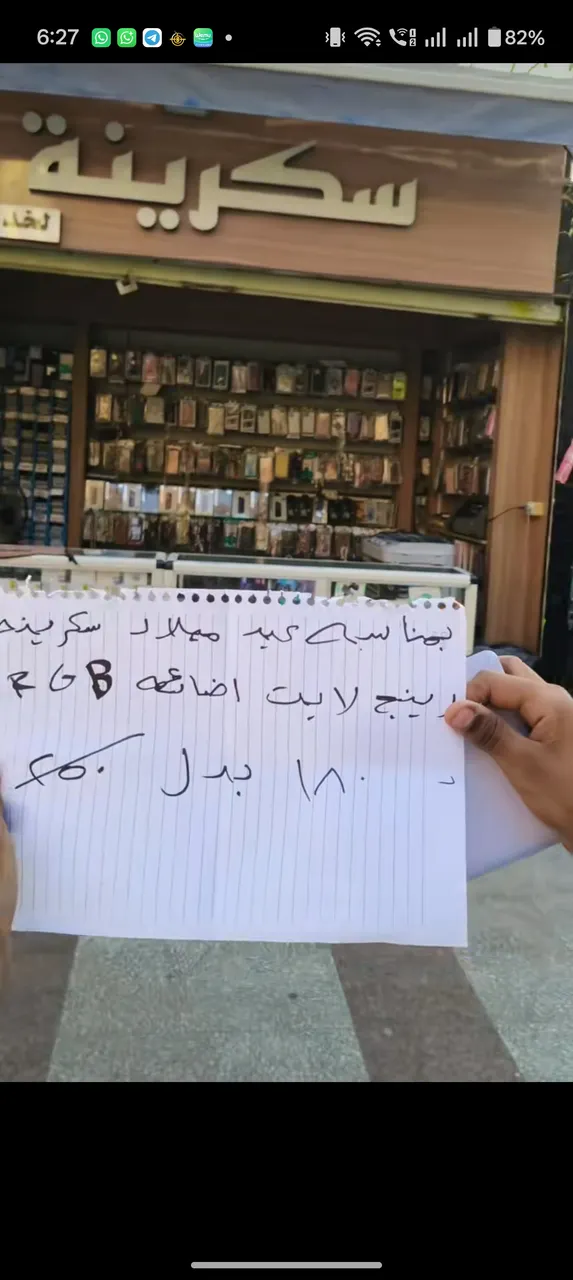 6:27
82%
سكرينة
لخد
بمناسبه عيد ميلاد سكرينه
رينج لايت اضائه RGB
د ١٨٠ بدل ٢٥٠